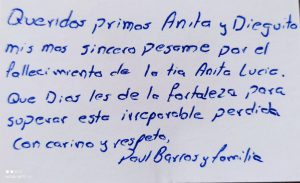 Queridos primos Anita y Dieguito
mis mas sincero pesame por el
fallecimiento de la tia Anita Lucia.
Que Dios les de la fortaleza para
superar esta irreparable perdida
Con carino y respeto,
Paul Barros y familia